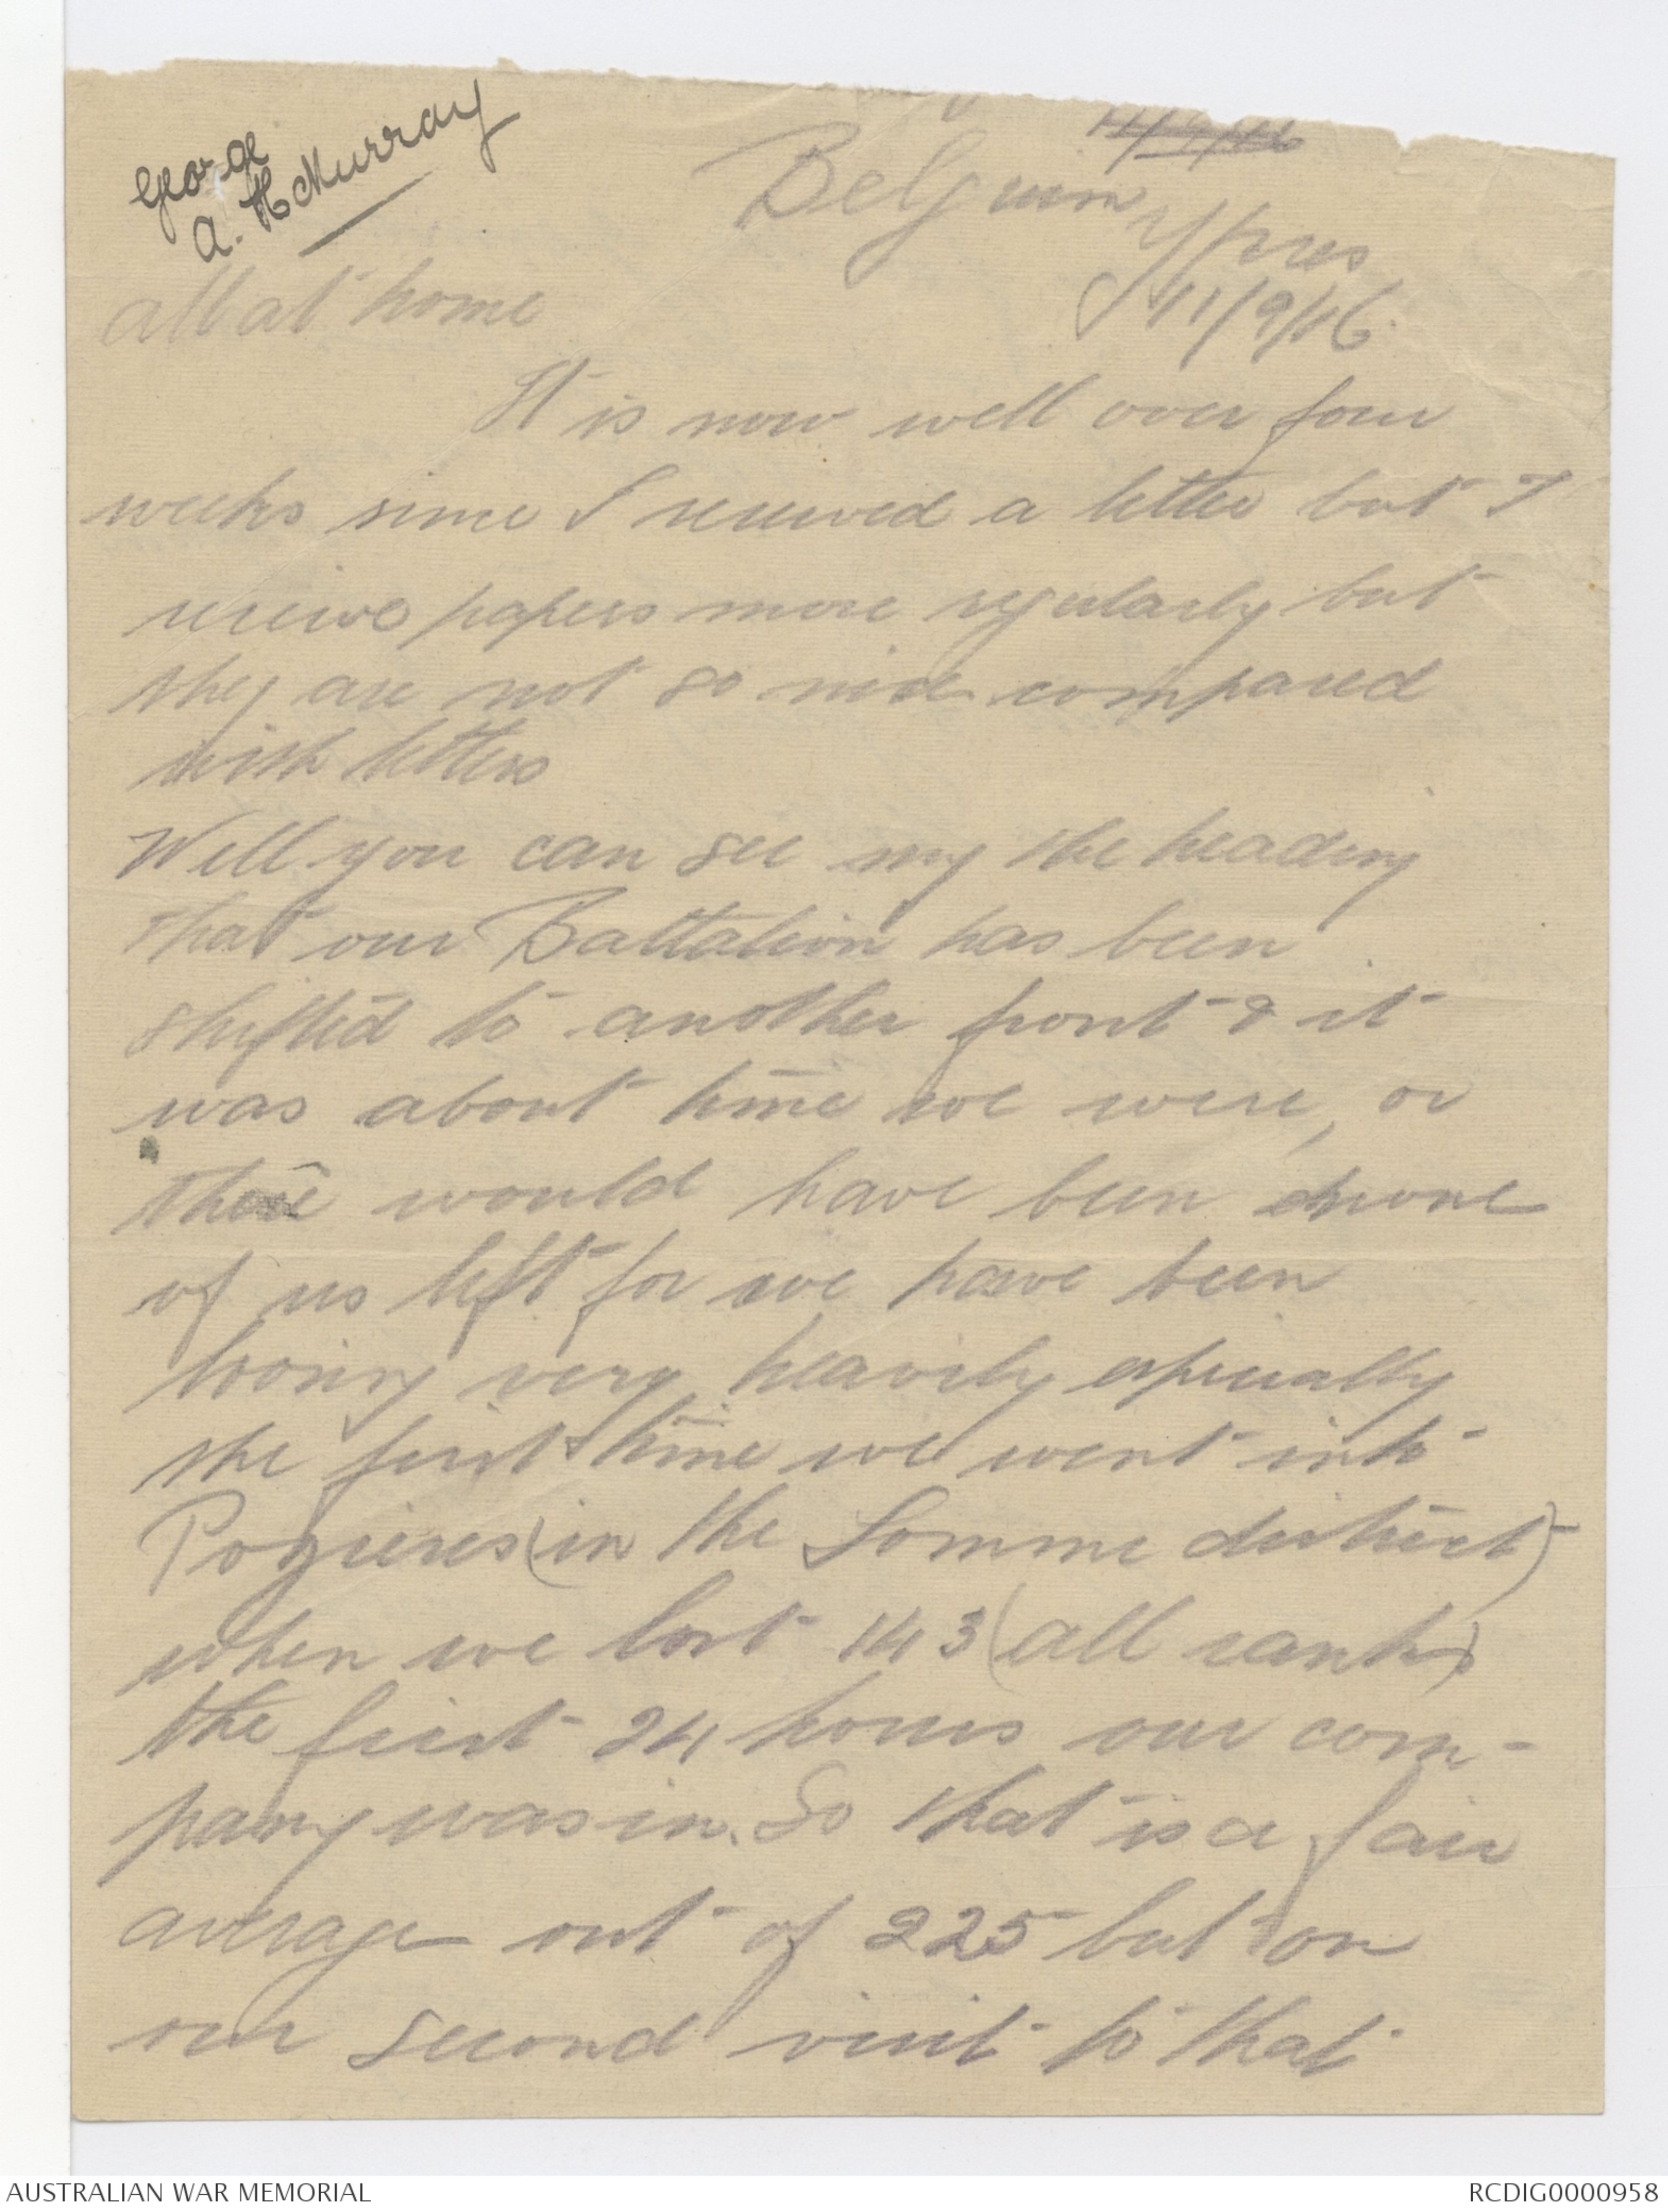 George
A. H. Murray
11/9/16
Belgium
Ypres
11/9/16
All at home
It is now well over four
weeks since I received a letter but I
receive papers more regularly but
they are not so nice compared
with letters
Well you can see my the heading
that our Battalion has been
shifted to another front & it
was about time we were, or
there would have been none
of us left for we have been
loosing very heavily especially
the first time we went into
Pozieres (in the Somme district)
when we lost 143 (all ranks)
the first 24 hours our com-
pany was in. So that is a fair
average out of 225 but on
our second visit to that
AUSTRALIAN WAR MEMORIAL
RCDIG0000958